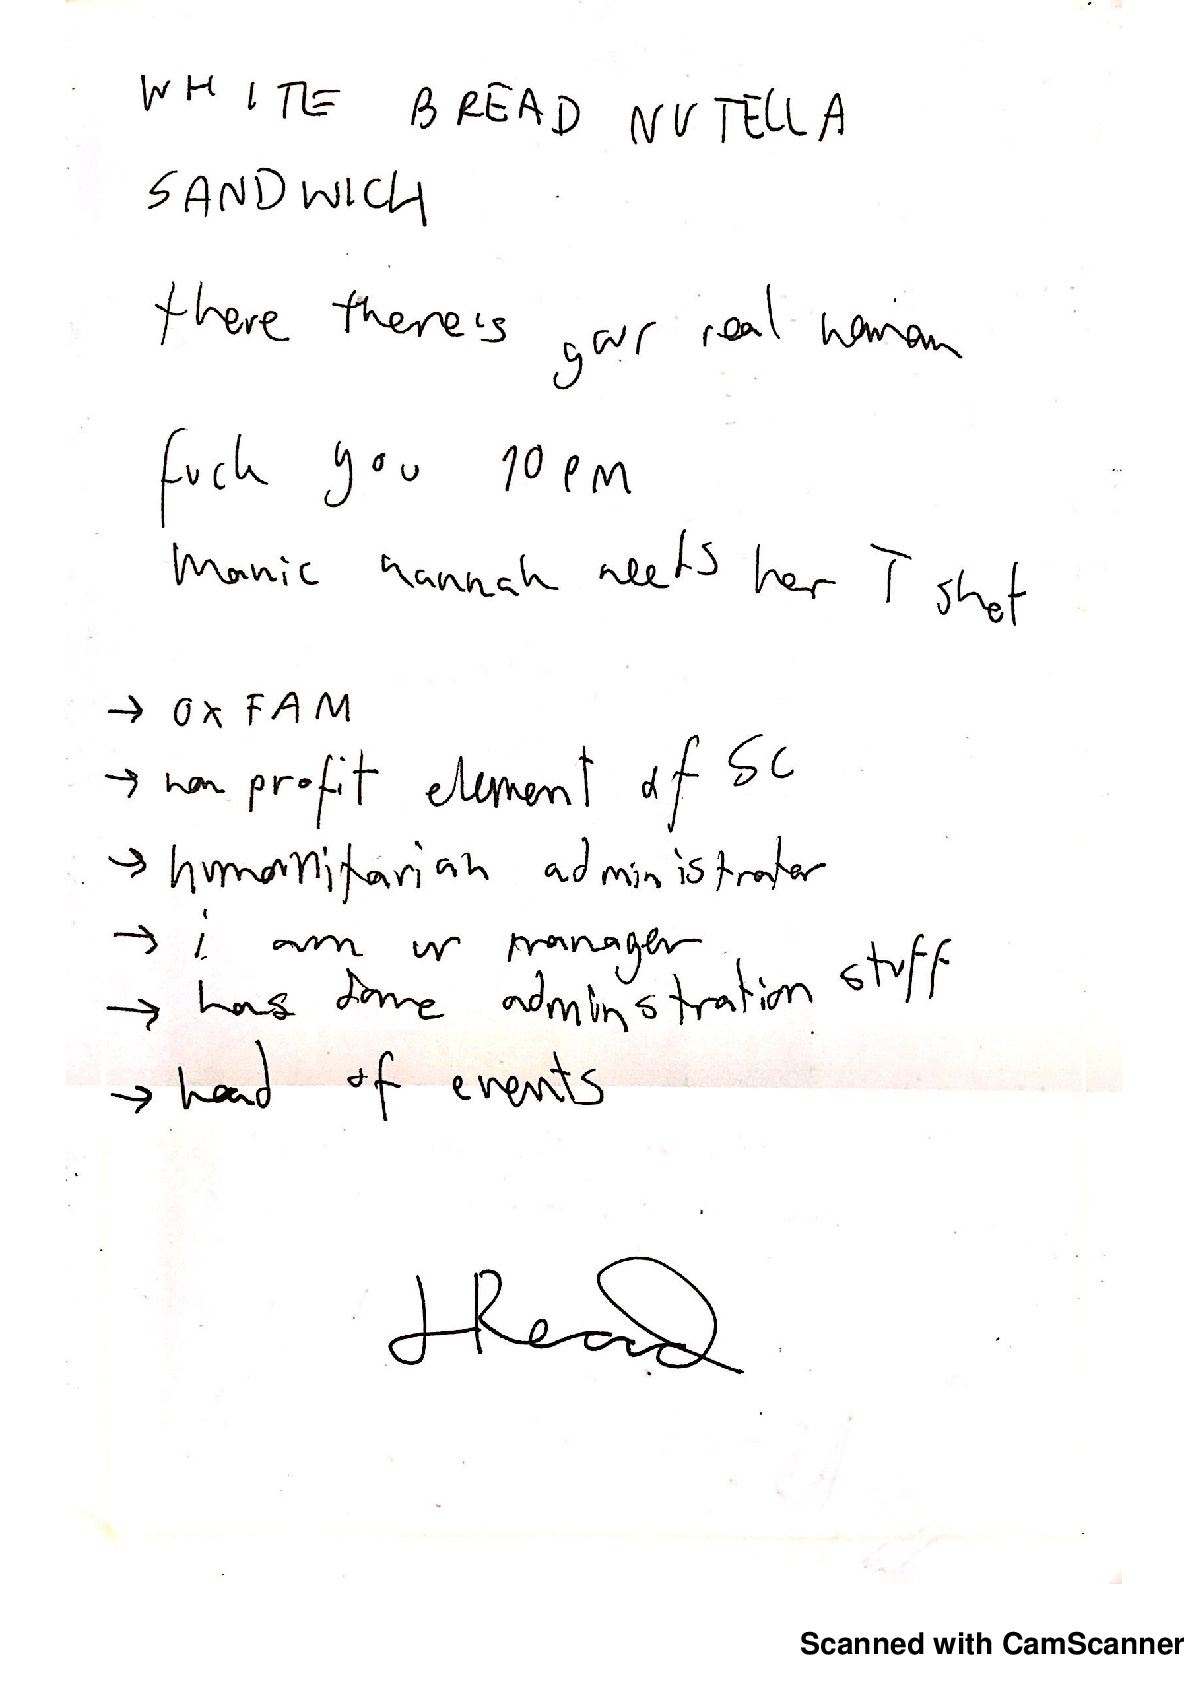 WHITE BREAD NUTELLA
SANDWICH
there there's your real haman
fuck you 10 PM
Manic hannah needs her T shot
→ OXFAM
→ non profit element of SC
→ humanitarian administrator
→ i am ur manager
→ has done administration stuff
→ head of events
JRead
Scanned with CamScanner